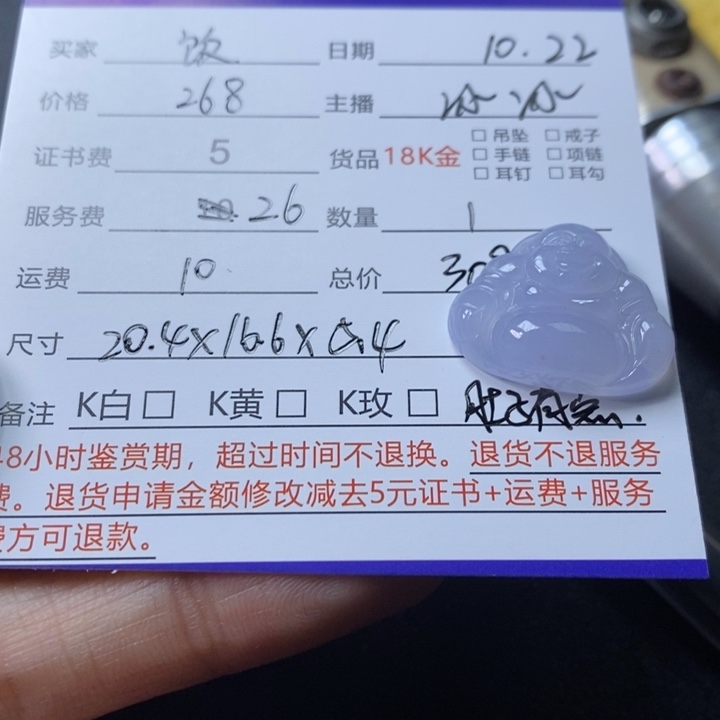 买家 饮 日期 10.22
价格 268 主播 冰冰
证书费 5 货品 18K金 □ 吊坠 □ 戒子
□ 手链 □ 项链
□ 耳钉 □ 耳勾
服务费 26 数量 1
运费 10 总价 309
尺寸 20.4×16.6×5.4
备注 K白 □ K黄 □ K玫 □ 肚子有点.
48小时鉴赏期，超过时间不退换。退货不退服务
费。退货申请金额修改减去5元证书+运费+服务
费方可退款。